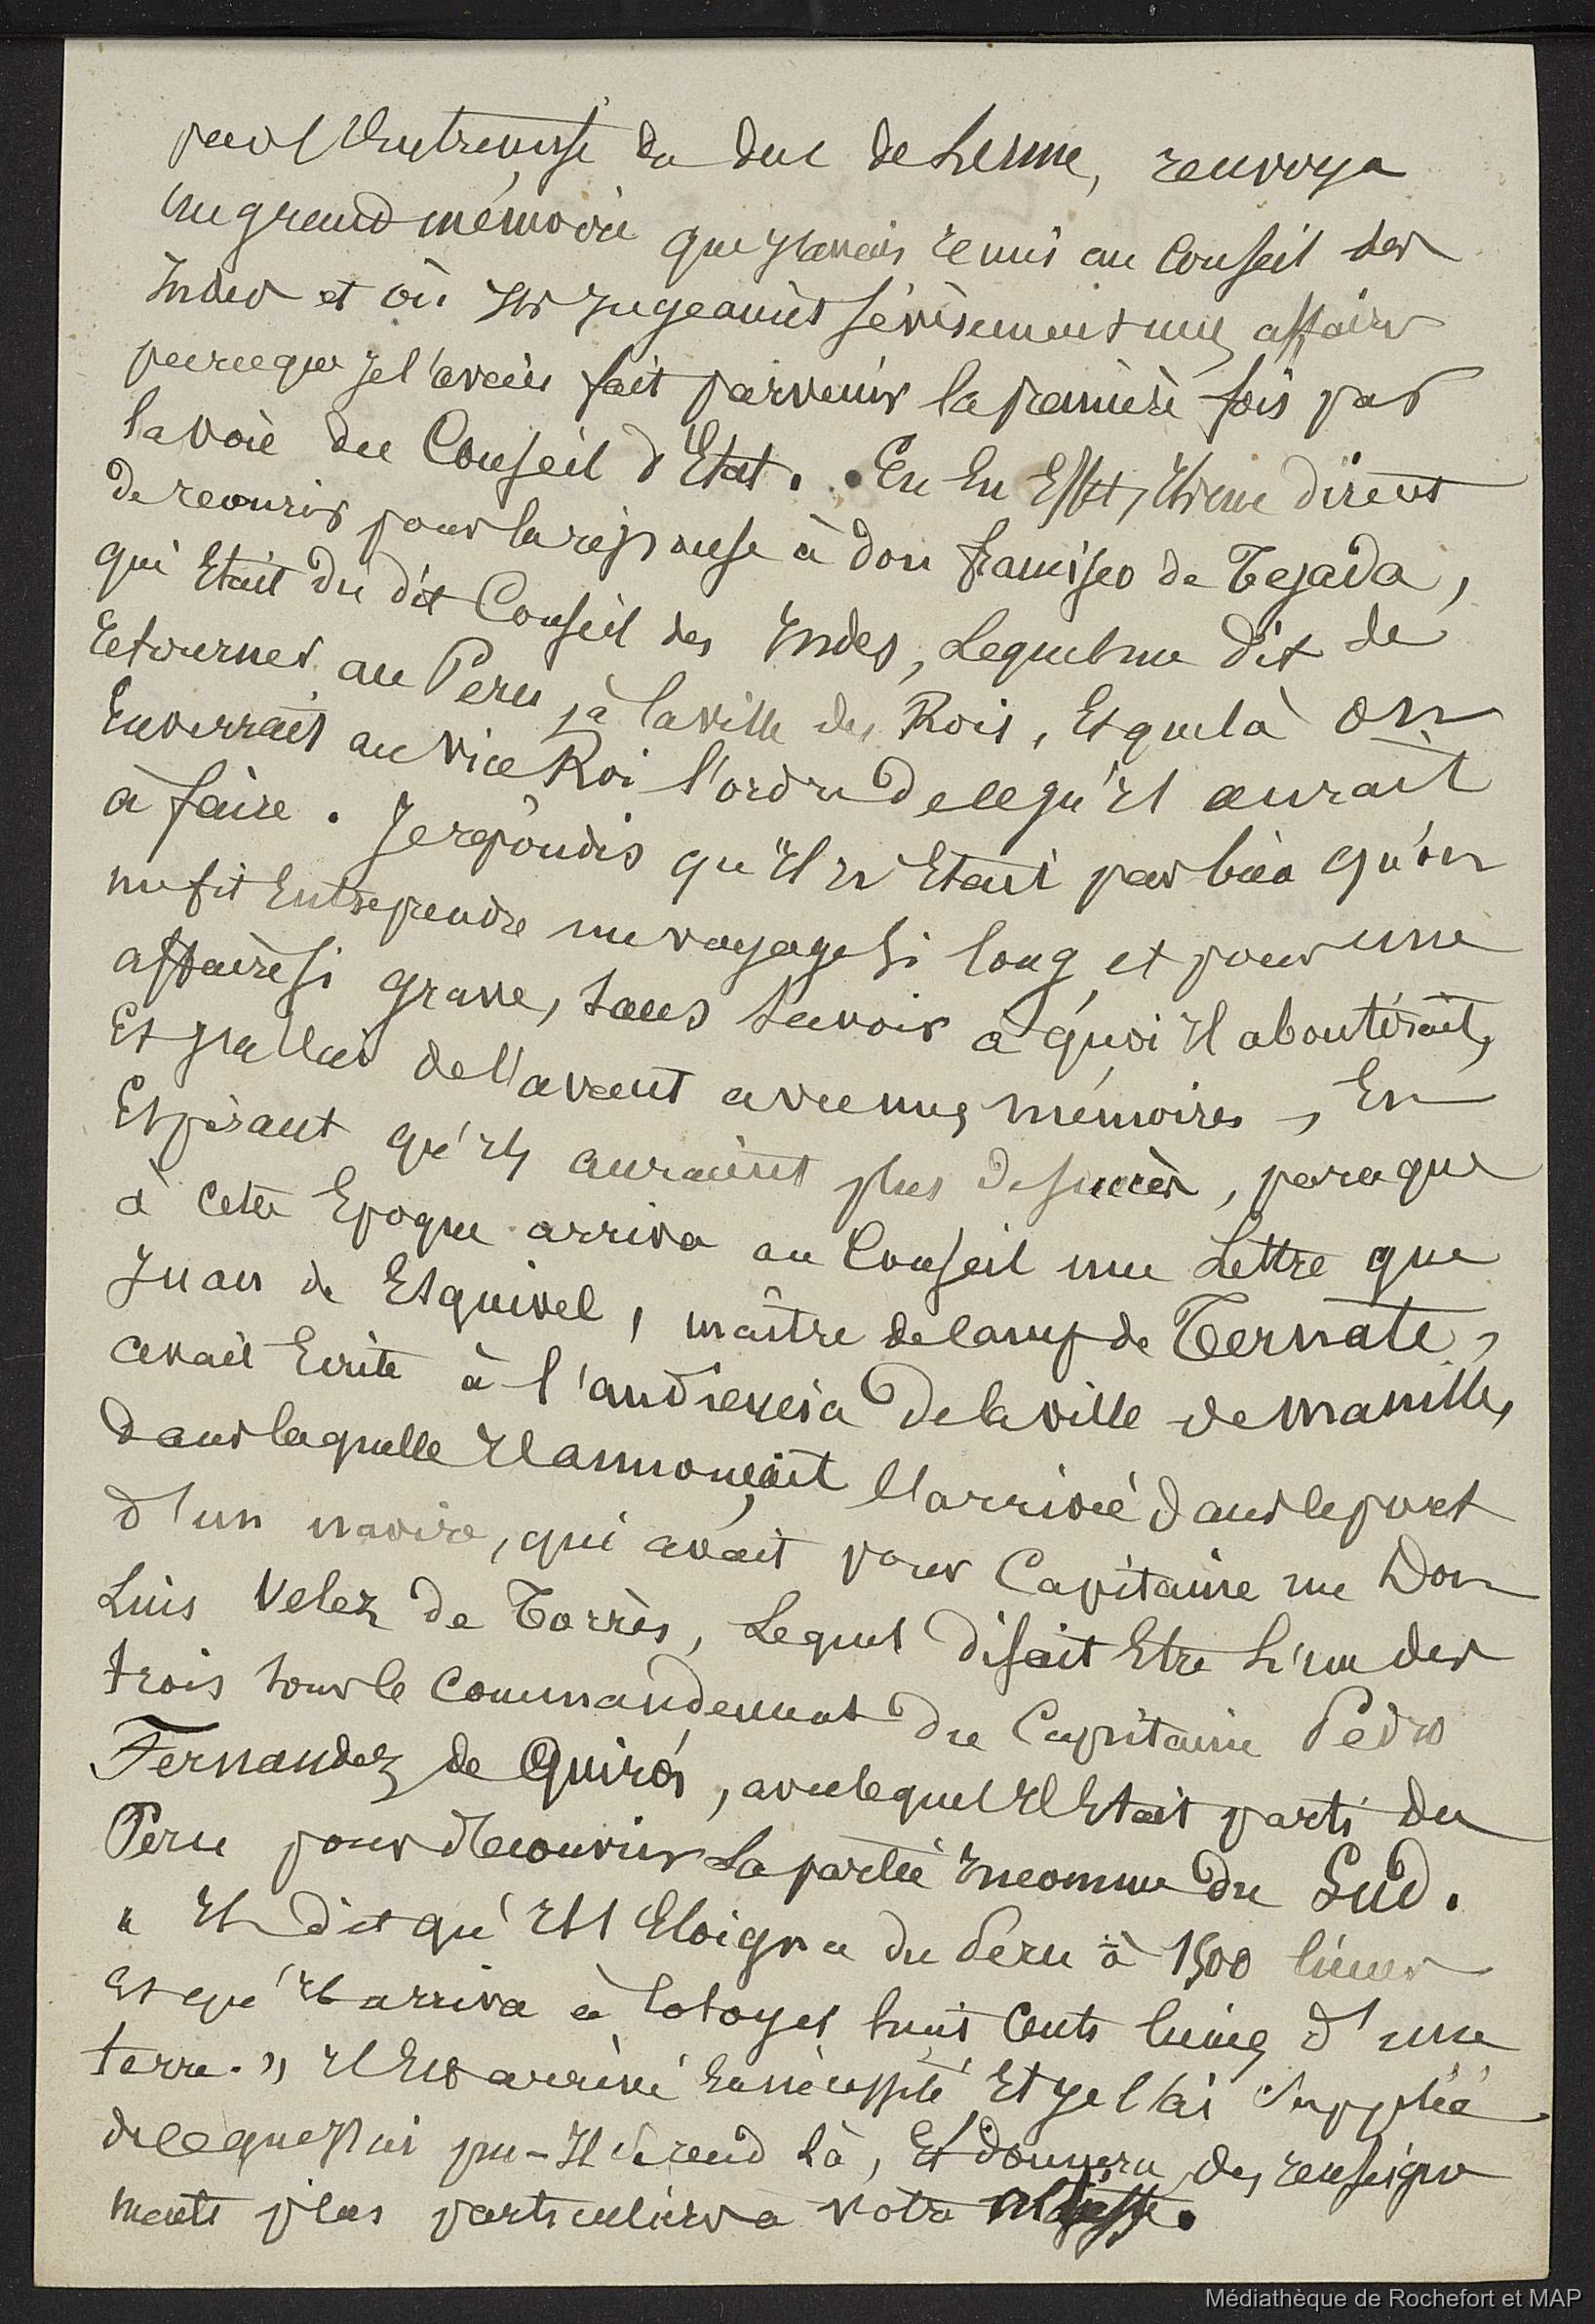 par l'Entremise du duc de Lerme, renvoya
un grand mémoire que j'avais remis au Conseil des
Indes et où Ils Jugeaient sévèrement mes affaires
parceque je l'avais fait parvenir la première fois par
la voie du Conseil d'Etat. En Effet, Ils me dirent
de recourir pour la réponse à don francisco de Tejada,
qui Etait du dit Conseil des Indes, Lequel me dit de
retourner au Perú, à la ville des Rois, Et que là on
Enverrait au vice Roi l'ordre de ce qu'il aurait
à faire. Je répondis qu'Il n'Etait pas bien qu'on
me fit Entreprendre un voyage si long et pour une
affaire si grave, sans savoir à quoi Il aboutirait,
Et j'allai de l'avant avec mes mémoires, En
Espérant qu'Ils auraient plus de succès, parceque
à cette Epoque arriva au Conseil une Lettre que
Juan de Esquivel, maître de camp de Ternate,
avait Ecrite à l'audiencia de la ville de manille,
dans laquelle Il annonçait l'arrivée dans le port
d'un navire, qui avait pour Capitaine un Don
Luis Velez de Torrès, Lequel disait Etre L'un des
trois sous le Commandement du Capitaine Pedro
Fernandez de Quirós, avec lequel Il Etait parti du
Peru pour découvrir La partie Inconnue du Sud.
" Il dit qu'Il s'Eloigna du Peru à 1500 lieues
Et qu'Il arriva à Cotoyer huit cents lieues d'une
terre. " Il Est arrivé En nécessité Et je l'ai suppléé
de ce que j'ai pu - Il se rend là, Et donnera des renseigne
ments plus particuliers à Votre Altesse.
Médiathèque de Rochefort et MAP